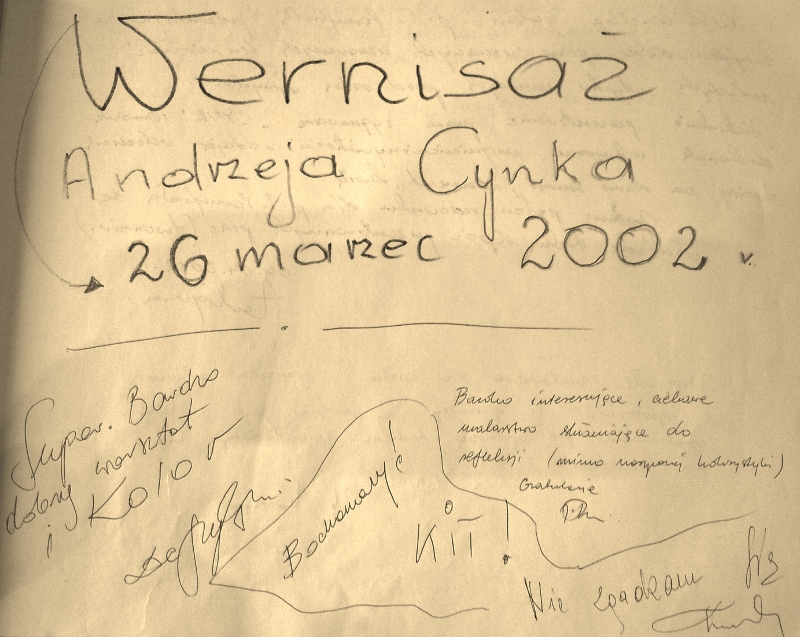 Wernisaż
Andrzeja Cynka
26 marzec 2002 r.
Super. Bardzo
dobry warsztat
i Kolor
Bardzo interesujące, ciekawe
malarstwo skłaniające do
refleksji (mimo kolorystyki)
Gratuluję
Kit!
Nie zgadzam się